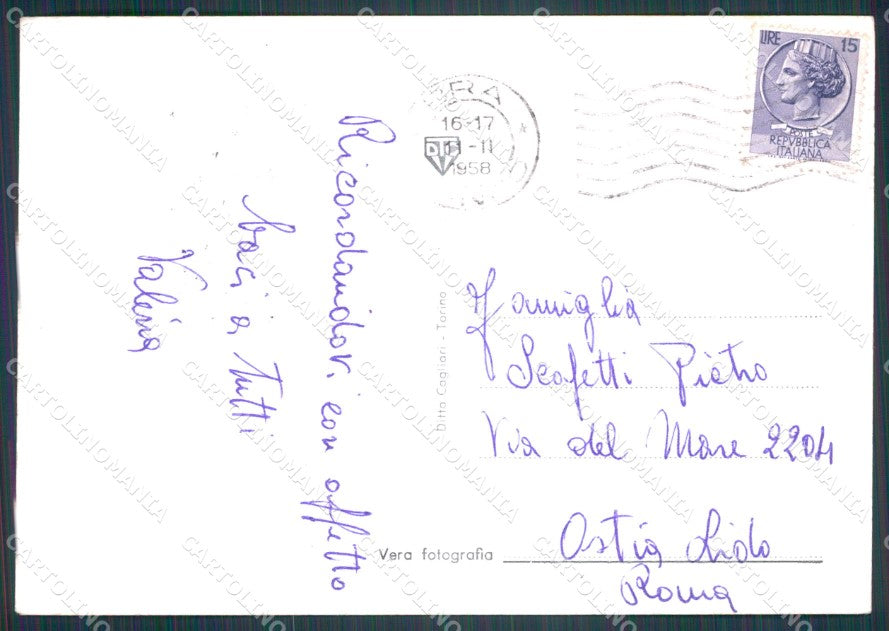 Ricordandovi con affetto
baci a tutti
Valeria
LIRE 15
POSTE
REPVBBLICA
ITALIANA
16-17
11-11
1958
Ditta Cagliari - Torino
Famiglia
Scafetti Pietro
Via del Mare 220A
Ostia Lido
Roma
Vera fotografia
CARTOLINOMANIA